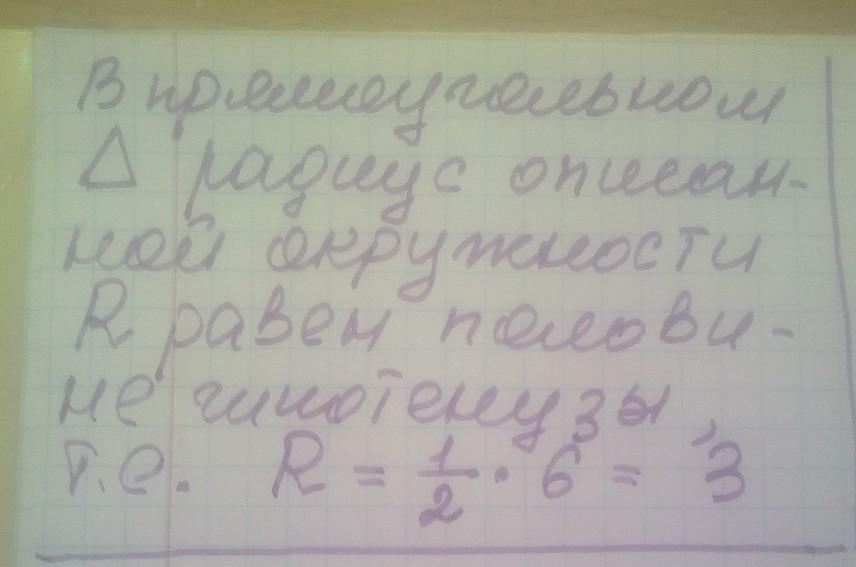 В прямоугольном
Δ радиус описан-
ной окружности
R равен полови-
не гипотенузы,
т.е. R = 1/2 · 6 = 3